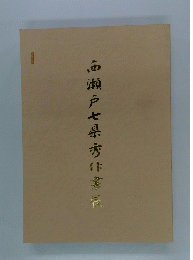 西瀬戸七県秀作書展